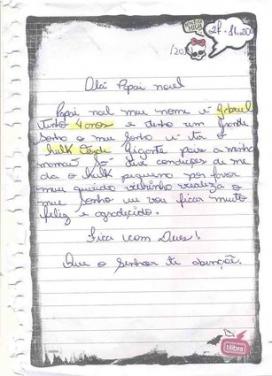 27-11-20
/20
Olá Papai noel
Papai noel meu nome é Gabriel
tenho 4 anos e tenho um grande
sonho o meu sonho é ter o
hulk verde gigante pois a minha
mamãe só tive condições de me
da o hulk pequeno por favor
meu querido velhinho realiza o
meu sonho eu vou ficar muito
feliz e agradecido.
Fica com Deus!
Que o Senhor te abençõe.
tilibra